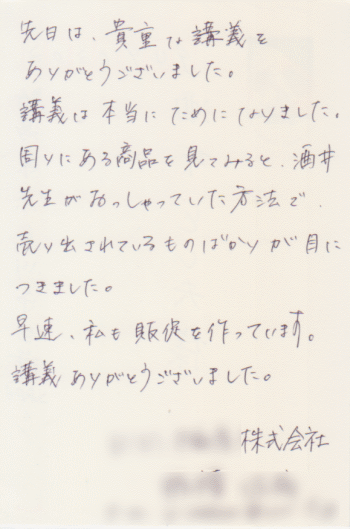 先日は、貴重な講義を
ありがとうございました。
講義は本当にためになりました。
周りにある商品を見てみると、酒井
先生がおっしゃっていた方法で、
売り出されているものばかりが目に
つきました。
早速、私も販促を作っています。
講義ありがとうございました。
株式会社